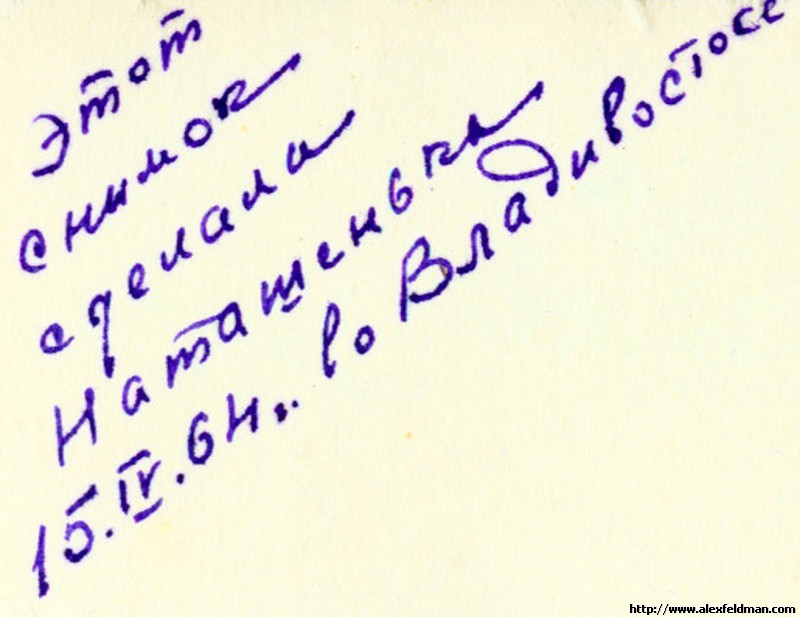 Этот
снимок
сделала
Наташенька
15.IV.64.. во Владивостосе
http://www.alexfeldman.com